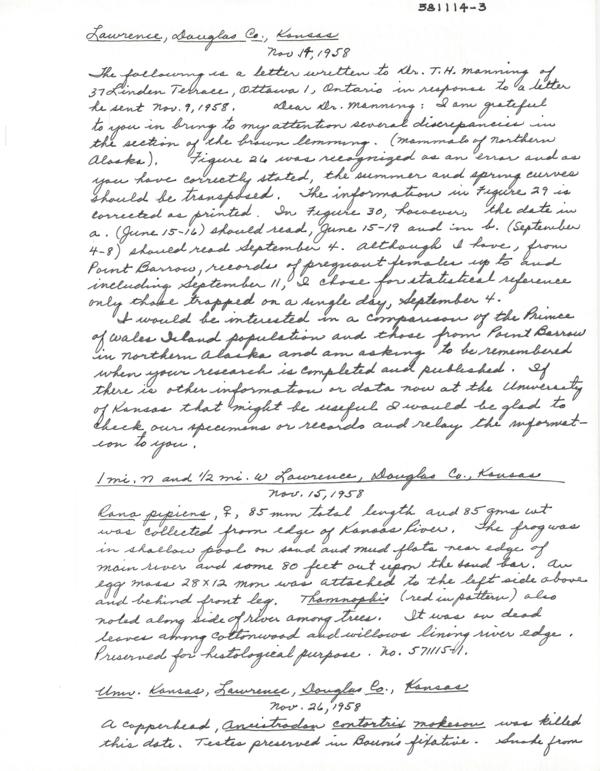 581114-3
Lawrence, Douglas Co., Kansas
Nov 14, 1958
The following is a letter written to Dr. T.H. Manning of
37 Linden Terrace, Ottawa 1, Ontario in response to a letter
he sent Nov. 9, 1958. Dear Dr. Manning: I am grateful
to you in bring to my attention several discrepancies in
the section of the brown lemming. (Mammals of Northern
Alaska). Figure 26 was recognized as an error and as
you have correctly stated, the summer and spring curves
should be transposed. The information in Figure 29 is
corrected as printed. In Figure 30, however, the date in
a. (June 15-16) should read, June 15-19 and in b. (September
4-8) should read September 4. Although I have, from
Point Barrow, records of pregnant females up to and
including September 11, I chose for statistical reference
only those trapped on a single day, September 4.
I would be interested in a comparison of the Prince
of Wales Island population and those from Point Barrow
in northern Alaska and am asking to be remembered
when your research is completed and published. If
there is other information or data now at the University
of Kansas that might be useful I would be glad to
check our specimens or records and relay the informat-
ion to you.
1 mi. N and 1/2 mi. W Lawrence, Douglas Co., Kansas
Nov. 15, 1958
Rana pipiens, ♀, 85 mm total length and 85 gms wt
was collected from edge of Kansas River. The frog was
in shallow pool on sand and mud flats near edge of
main river and some 80 feet out upon the sand bar. An
egg mass 28x12 mm was attached to the left side above
and behind front leg. Thamnophis (red in pattern) also
noted along side of river among trees. It was on dead
leaves among cottonwood and willows lining river edge.
Preserved for histological purpose. No.
Univ. Kansas, Lawrence, Douglas Co., Kansas
Nov. 26, 1958
A copperhead, Ancistrodon contortrix mokeson was killed
this date. Testes preserved in Bouin's fixative. Snake from